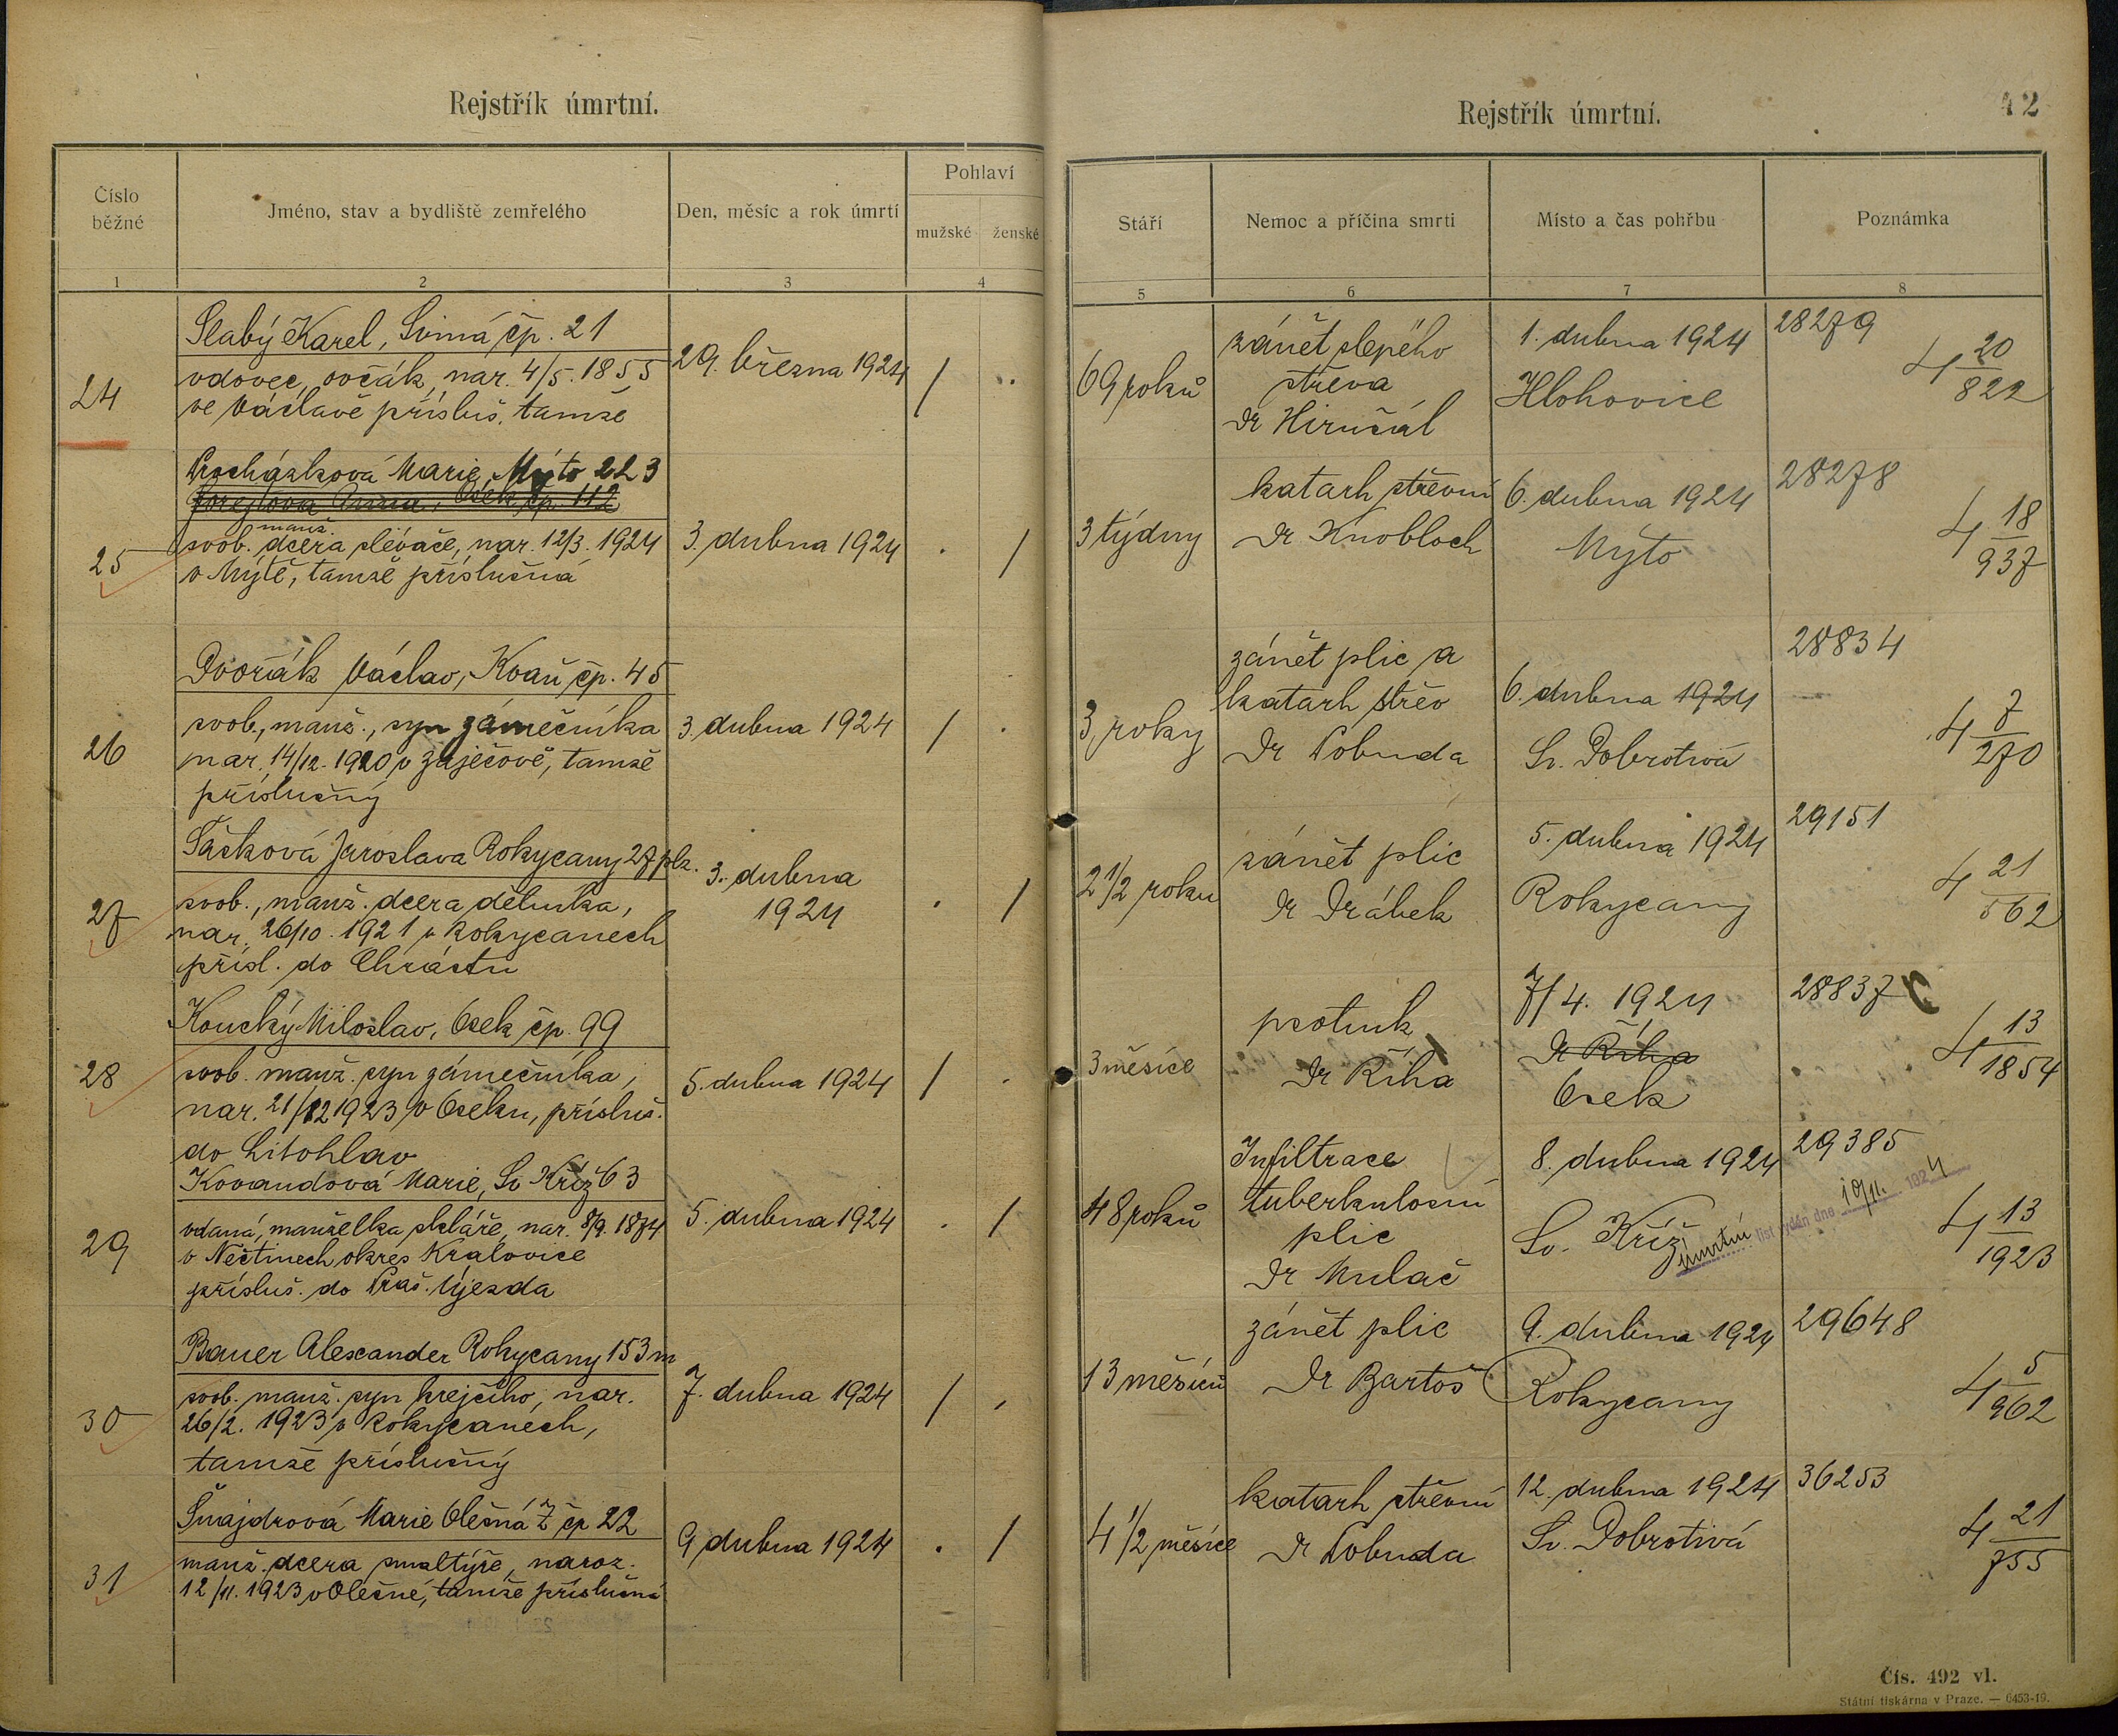 Rejstřík úmrtní.
Číslo běžné
Jméno, stav a bydliště zemřelého
Den, měsíc a rok úmrtí
Pohlaví
mužské
ženské
1
2
3
4
24
Slabý Karel, Sviná čp. 21
vdovec, ovčák, nar. 4/5. 1855
ve Václavě přísluš. tamže
29. března 1924
/
.
25
Procházková Marie, Mýto 223
Forejtova Anna, Osek čp. 112
manž.
svob. dcera slévače, nar. 12/3. 1924
v Mýtě, tamže příslušná
3. dubna 1924
.
/
26
Dvořák Václav, Kvaň čp. 45
svob., manž., syn zámečníka
nar. 14/12. 1920 v Zaječově, tamže
příslušný
3. dubna 1924
/
.
27
Tačková Jaroslava Rokycany 27 plz.
svob., manž. dcera dělníka,
nar. 26/10. 1921 v Rokycanech
přísl. do Chrástu
3. dubna
1924
.
/
28
Koucký Miloslav, Osek čp. 99
svob. manž. syn zámečníka,
nar. 21/12 1923 v Oseku, přísluš.
do Litohlav
5. dubna 1924
/
.
29
Kovandová Marie, Sv Kříž 63
vdaná, manželka skláře, nar. 8/9. 1874
v Nečtinech okres Kralovice
přísluš. do Praš. Újezda
5. dubna 1924
.
/
30
Bauer Alexander Rokycany 153 m
svob. manž. syn krejčího, nar.
26/2. 1923 v Rokycanech,
tamže příslušný
7. dubna 1924
/
.
31
Šnajdrová Marie Olešná Z čp 22
manž. dcera smaltýře, naroz.
12/11. 1923 v Olešné, tamže příslušná
9 dubna 1924
.
/
Rejstřík úmrtní.
42
Stáří
Nemoc a příčina smrti
Místo a čas pohřbu
Poznámka
5
6
7
8
69 roků
zánět slepého
střeva
Dr Hirušál
1. dubna 1924
Hlohovice
28279
4 20/822
3 týdny
katarh střevní
Dr Knobloch
6. dubna 1924
Mýto
28278
4 18/937
3 roky
zánět plic a
katarh střev
Dr Lobuda
6. dubna 1924
Sv. Dobrotivá
28834
4 7/270
2 1/2 roku
zánět plic
Dr Drábek
5. dubna 1924
Rokycany
29151
4 21/562
3 měsíce
psotník
Dr Říha
7/4. 1924
Dr Říha
Osek
28837
4 13/1854
48 roků
Infiltrace
tuberkulosní
plic
Dr Mulač
8. dubna 1924
Sv. Kříž
29385
úmrtní list vydán dne 19/11. 1924
4 13/1923
13 měsíců
zánět plic
Dr Bartoš
9. dubna 1924
Rokycany
29648
4 5/962
4 1/2 měsíce
katarh střevní
Dr Lobuda
12. dubna 1924
Sv. Dobrotivá
36253
4 21/755
Čís. 492 vl.
Státní tiskárna v Praze. — 6453-19.